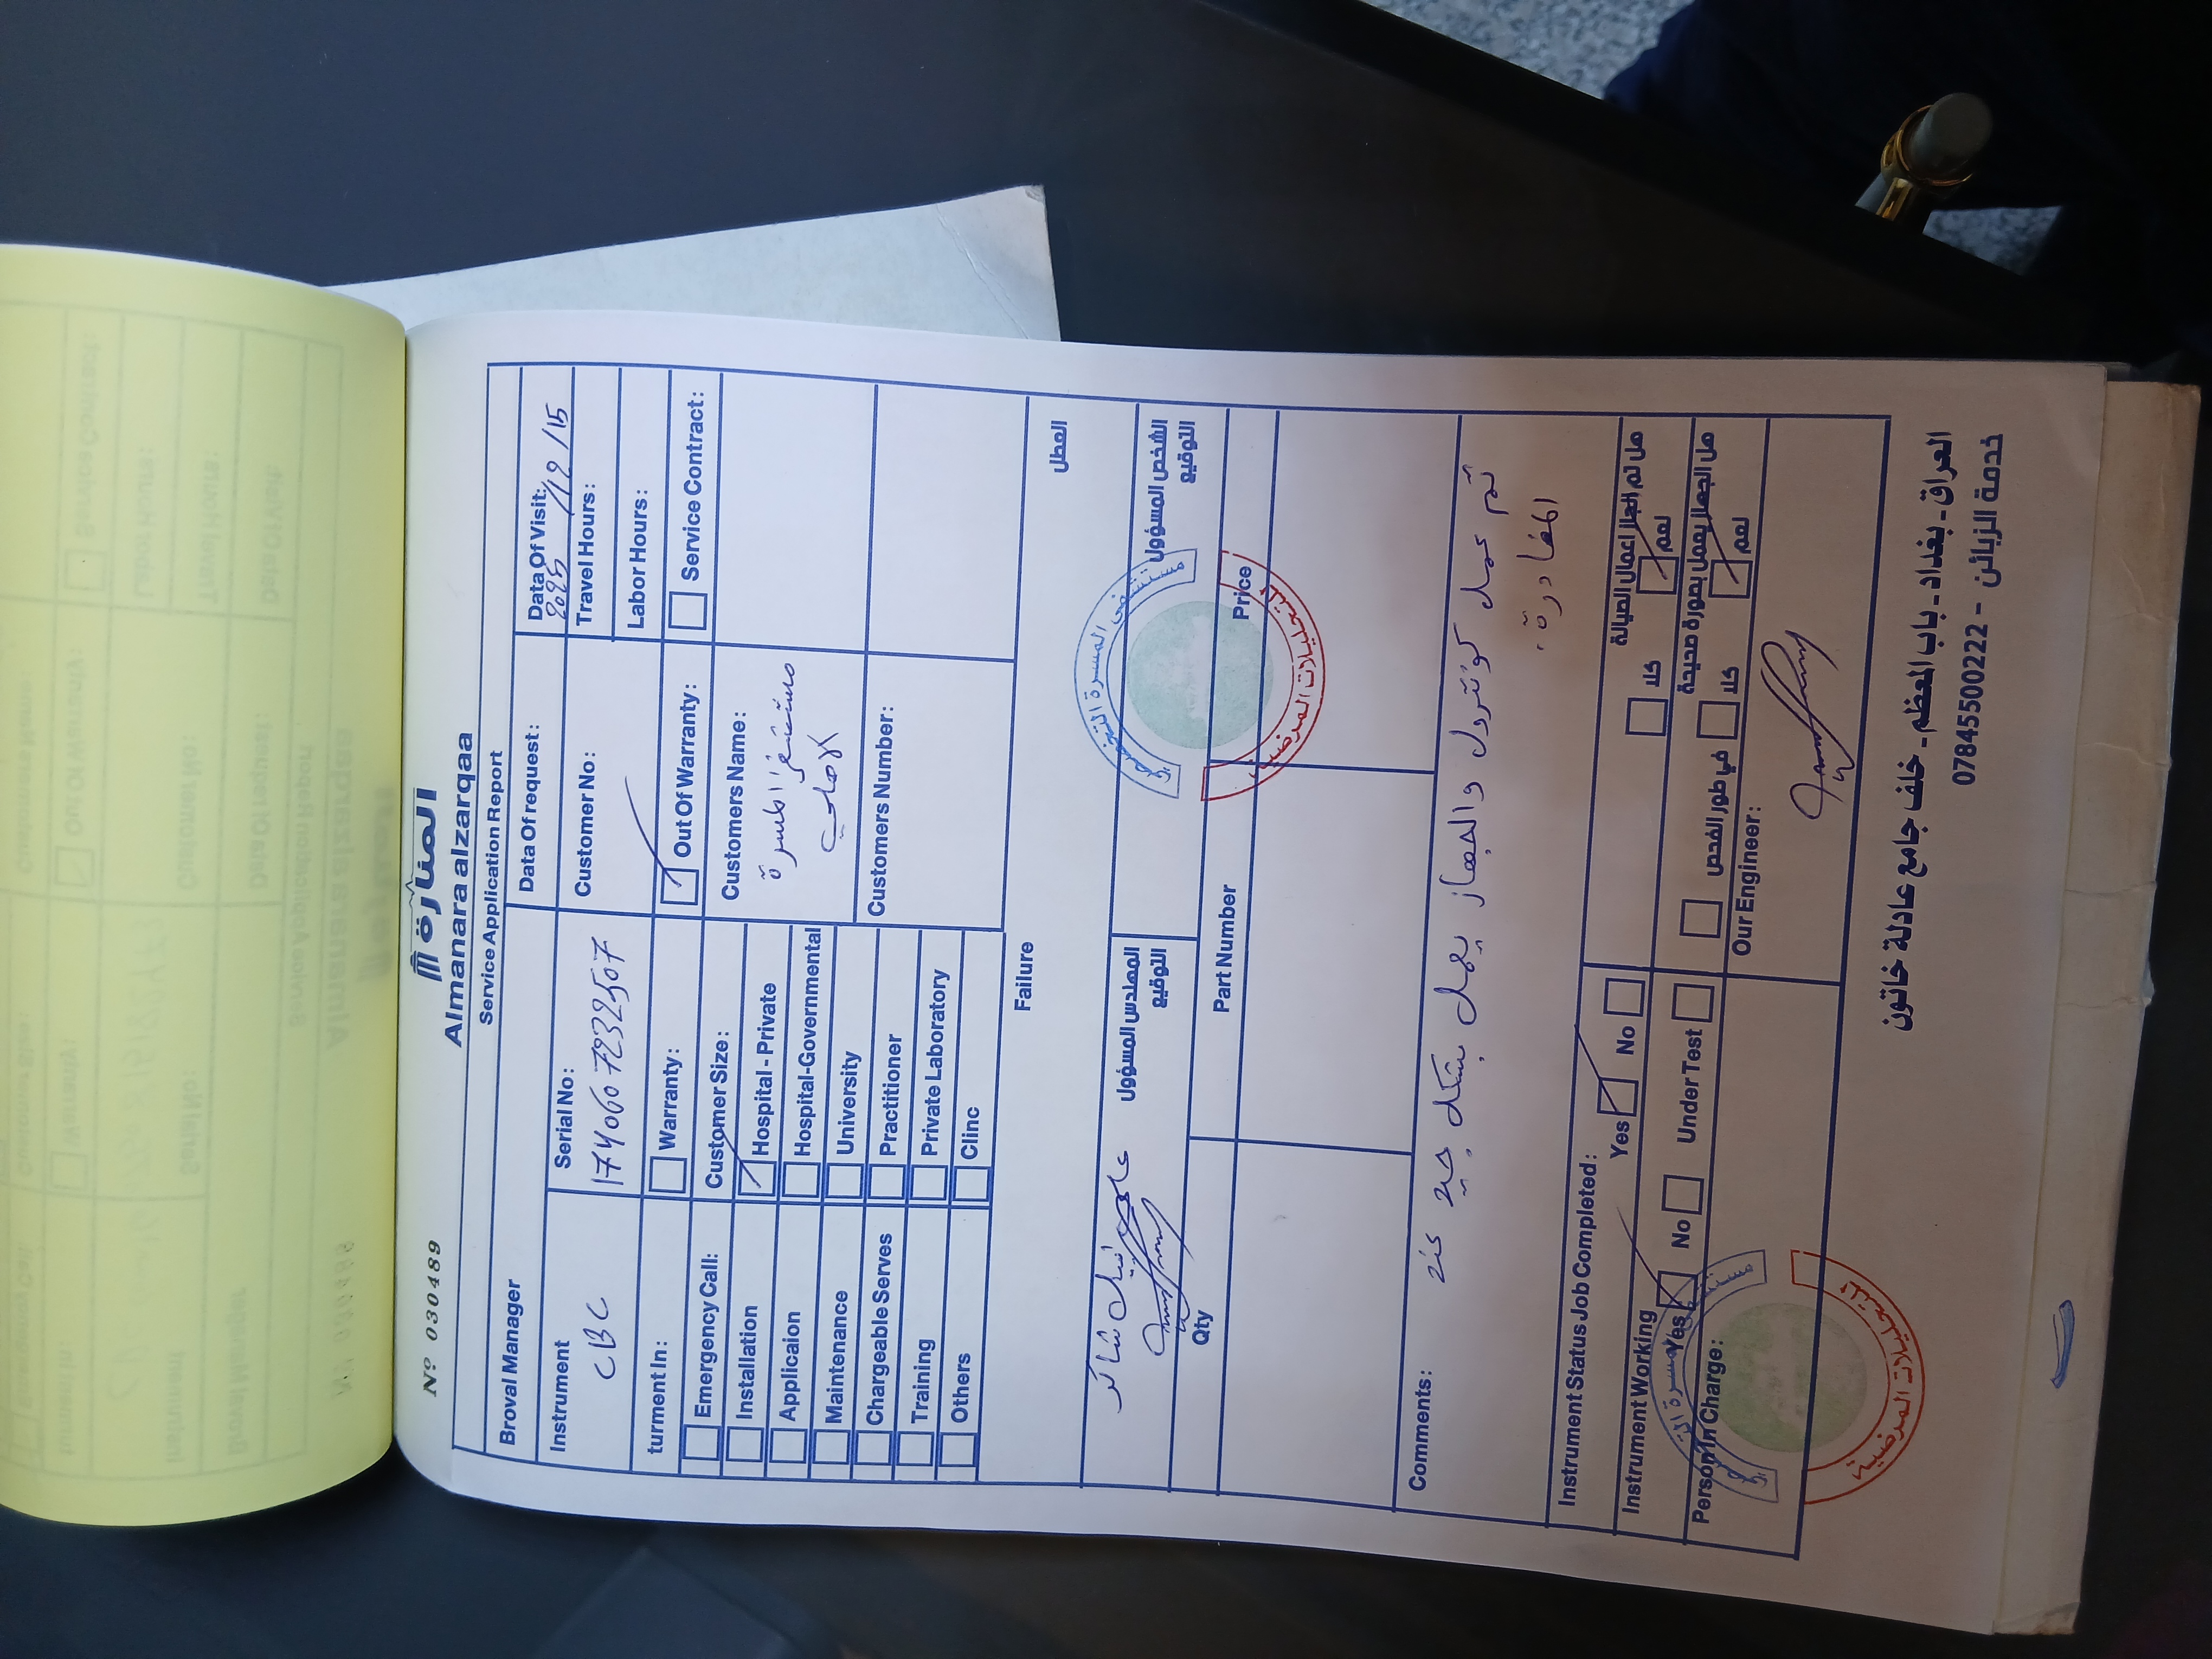 Nº 030489
المنارة
Almanara alzarqaa
Service Application Report
Broval Manager
Data Of request :
Data Of Visit:
2025/12/15
Instrument
CBC
Serial No:
Customer No:
Travel Hours:
Labor Hours:
turment In:
Warranty:
Out Of Warranty:
Service Contract:
Emergency Call:
Installation
Applicaion
Maintenance
Chargeable Serves
Training
Others
Customer Size:
Hospital - Private
Hospital-Governmental
University
Practitioner
Private Laboratory
Clinc
Customers Name:
مستشفى المسرة
الاهلي
Customers Number:
Failure
العطل
المهندس المسؤول
التوقيع
الشخص المسؤول
التوقيع
مستشفى المسرة
التحليلات المرضية
Qty
Part Number
Price
Comments:
تم عمل كونترول والجهاز يعمل بشكل جيد عند
المغادرة.
Instrument Status Job Completed:
Yes
No
هل تم انجاز اعمال الصيانة
نعم
كلا
Instrument Working
Yes
No
Under Test
هل الجهاز يعمل بصورة صحيحة
نعم
كلا
في طور الفحص
Person In Charge:
Our Engineer:
التحليلات المرضية
العراق - بغداد - باب المعظم - خلف جامع عادلة خاتون
خدمة الزبائن - 07845500222